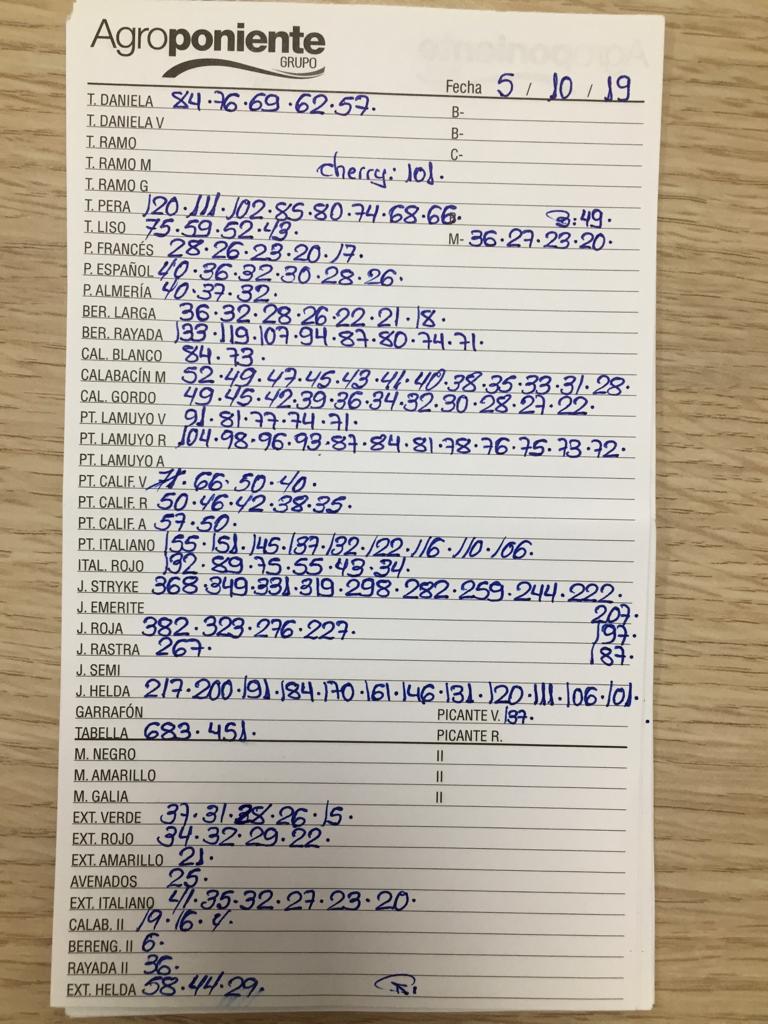 Agroponiente
GRUPO
Fecha 5 / 10 / 19
T. DANELA 84.76.69.62.57. B-
T. DANIELA V B-
T. RAMO C-
T. RAMO M cherry: 101.
T. RAMO G
T. PERA 120.111.102.85.80.74.68.66. B:49.
T. LISO 75.59.52.43. M- 36.27.23.20.
P. FRANCÉS 28.26.23.20.17.
P. ESPAÑOL 40.36.32.30.28.26.
P. ALMERÍA 40.37.32.
BER. LARGA 36.32.28.26.22.21.18.
BER. RAYADA 133.119.107.94.87.80.74.71.
CAL. BLANCO 84.73.
CALABACÍN M 52.49.47.45.43.41.40.38.35.33.31.28.
CAL. GORDO 49.45.42.39.36.34.32.30.28.27.22.
PT. LAMUYO V 91.81.77.74.71.
PT. LAMUYO R 104.98.96.93.87.84.81.78.76.75.73.72.
PT. LAMUYO A
PT. CALIF. V 71.66.50.40.
PT. CALIF. R 50.46.42.38.35.
PT. CALIF. A 57.50.
PT. ITALIANO 155.151.145.137.132.122.116.110.106.
ITAL. ROJO 132.89.75.55.43.34.
J. STRYKE 368.349.331.319.298.282.259.244.222.
J. EMERITE 207.
J. ROJA 382.323.276.227. 197.
J. RASTRA 267. 187.
J. SEMI
J. HELDA 217.200.191.184.170.161.146.131.120.111.106.101.
GARRAFÓN PICANTE V. 137.
TABELLA 683.451. PICANTE R.
M. NEGRO II
M. AMARILLO II
M. GALIA II
EXT. VERDE 37.31.28.26.15.
EXT. ROJO 34.32.29.22.
EXT. AMARILLO 21.
AVENADOS 25.
EXT. ITALIANO 41.35.32.27.23.20.
CALAB. II 19.16.4.
BERENG. II 6.
RAYADA II 36.
EXT. HELDA 58.44.29.